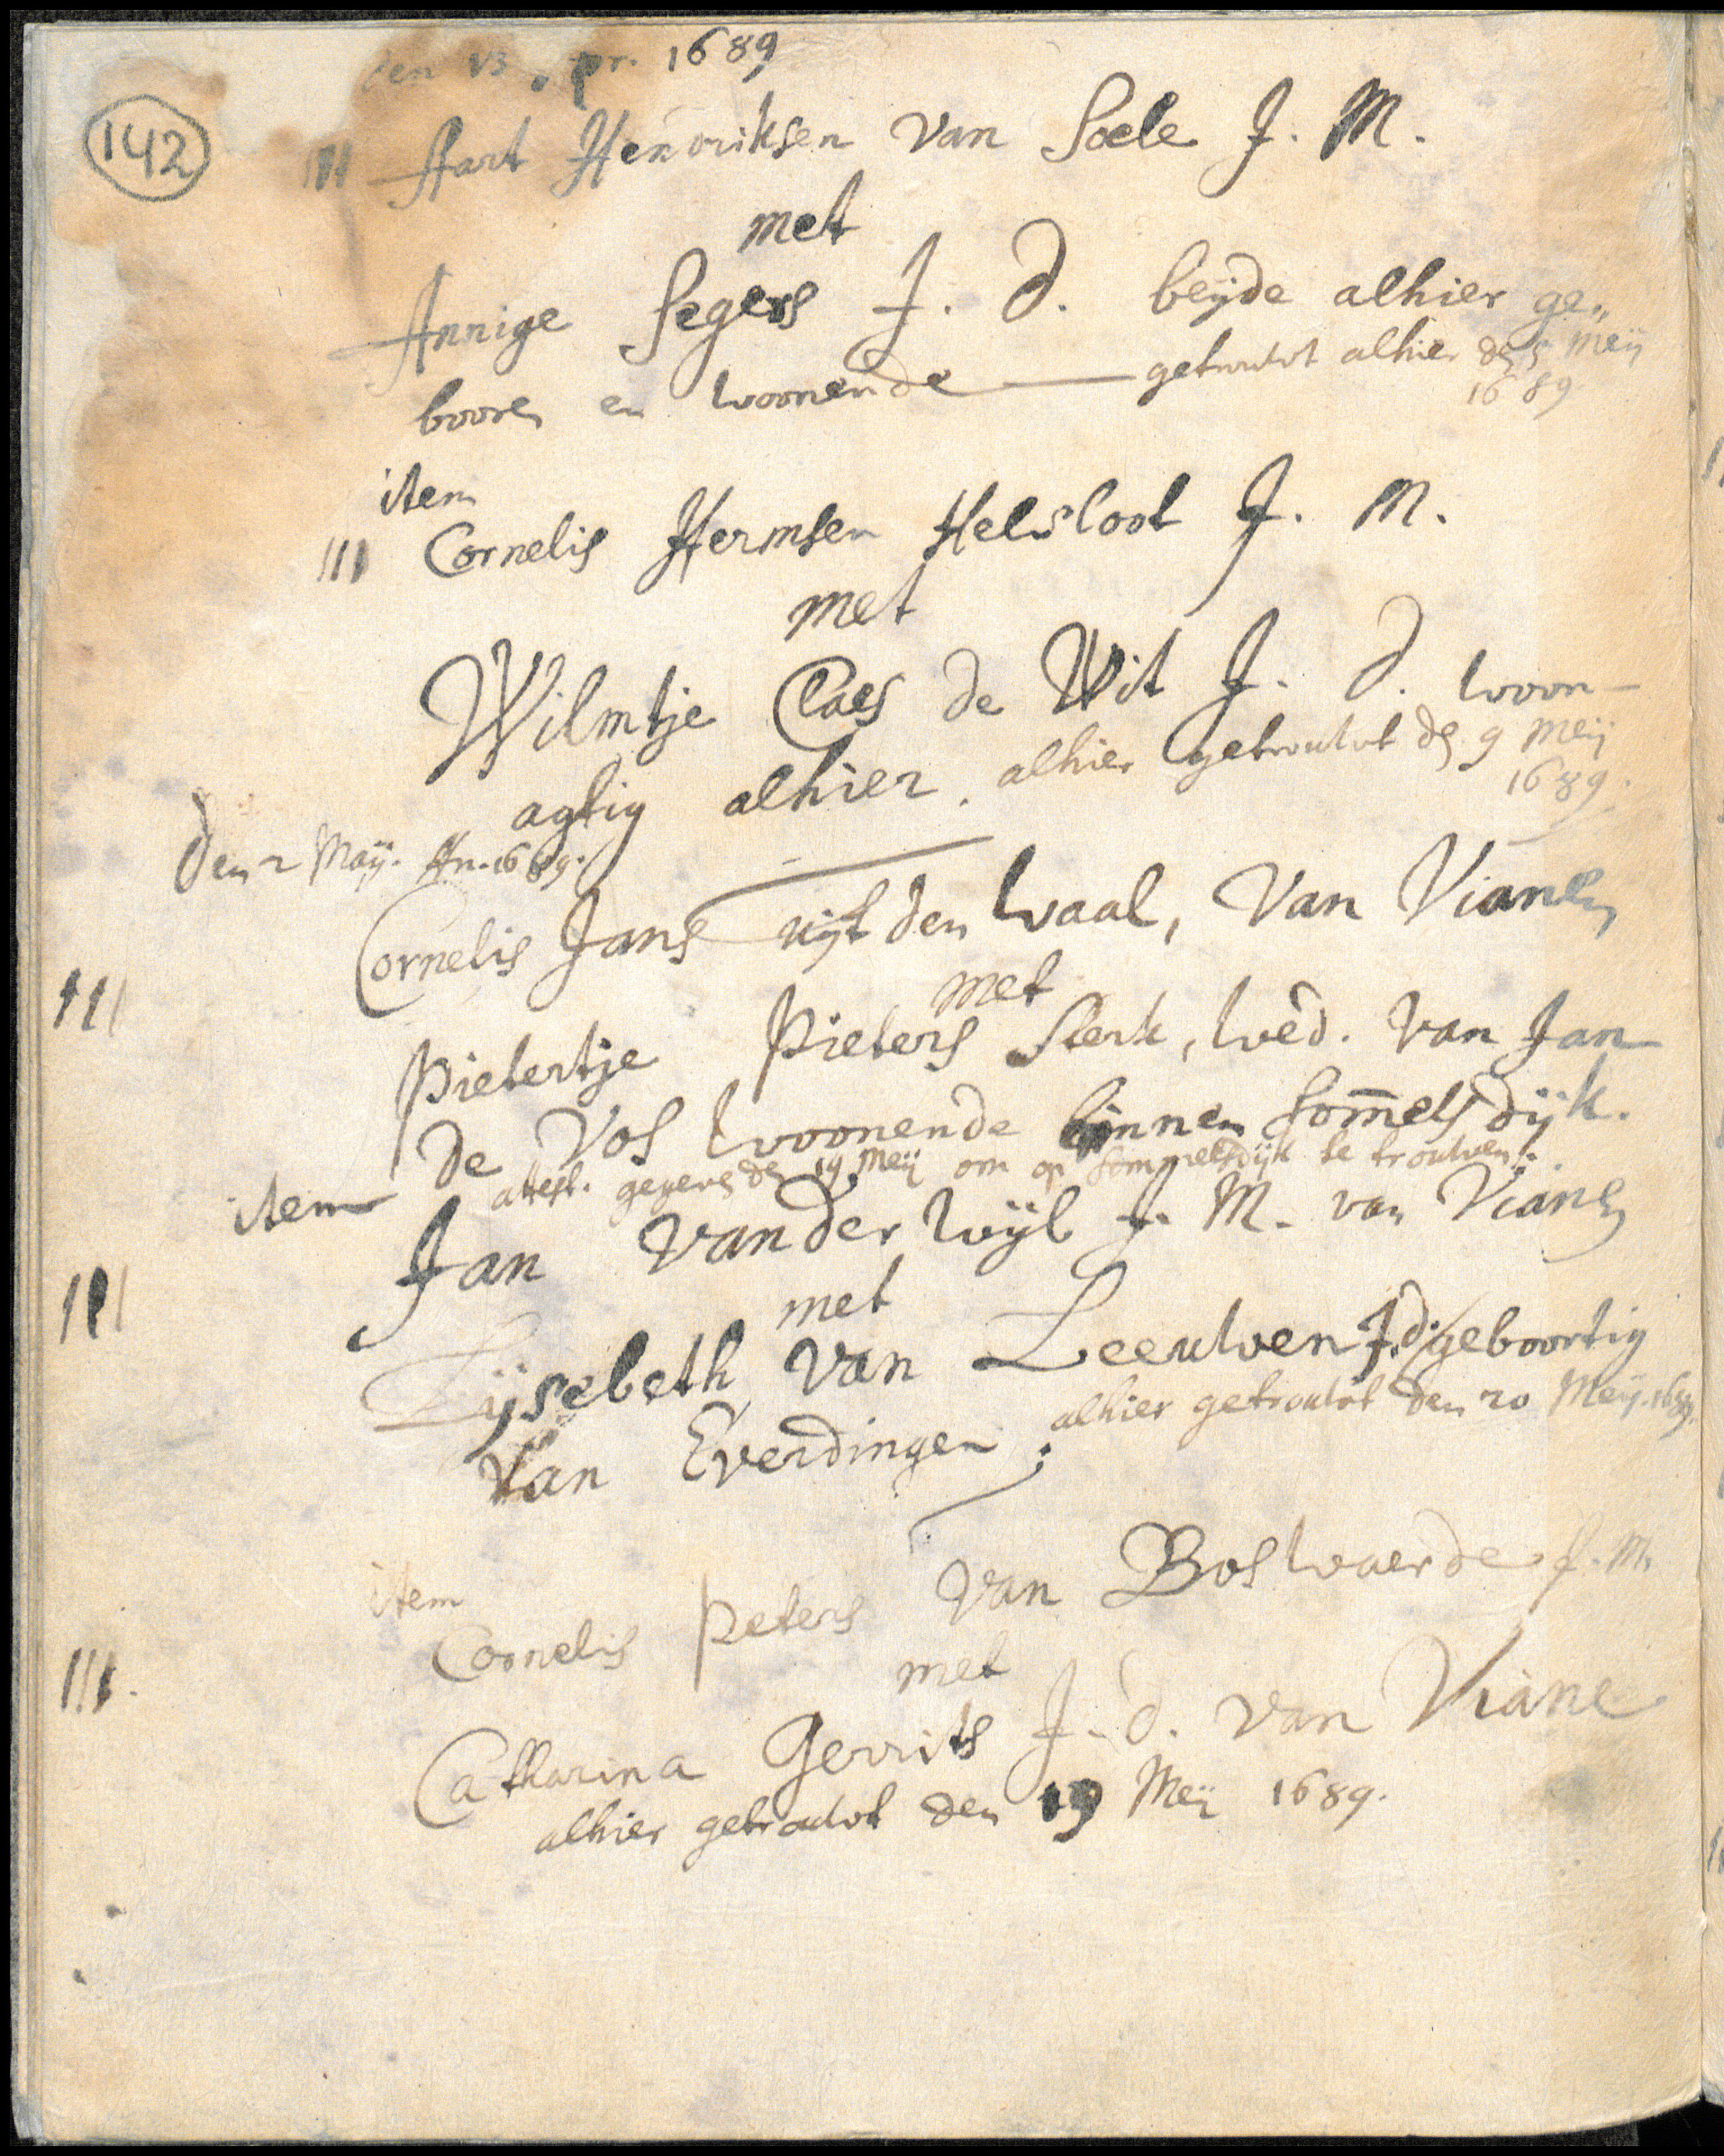 den 13 . pr. 1689
142
III Aart Henoriksen van Soele J. M.
met
Annige Segers J. d. beÿde alhier ge„
booren en woonende — getrouwt alhier den 5 Meÿ
1689
item
III Cornelis Hermsen Helsloot J. M.
met
Wilmtje Claes de Wit J. d. woon-
agtig alhier. alhier getrouwt den 9 Meÿ
1689.
Den 2 Maÿ. An. 1689.
Cornelis Jans uÿt den Waal, van Vianen
III
met
Pietertje Pieters Sterk, wed. van Jan
de Vos woonende binnen Som̄elsdÿk.
attest. gegeven den 19 Meÿ om op Sommelsdÿk te trouwen.
item
Jan vander Wÿl J. M. van Vianen
III
met
Lÿsebeth van Leeuwen J. d. geboortig
van Everdingen; alhier getrouwt den 20 Meÿ. 1689.
item
Cornelis Peters van Boswaerde J. M.
III.
met
Catharina Gerrits J. d. van Viane
alhier getrouwt den 19 Meÿ 1689.